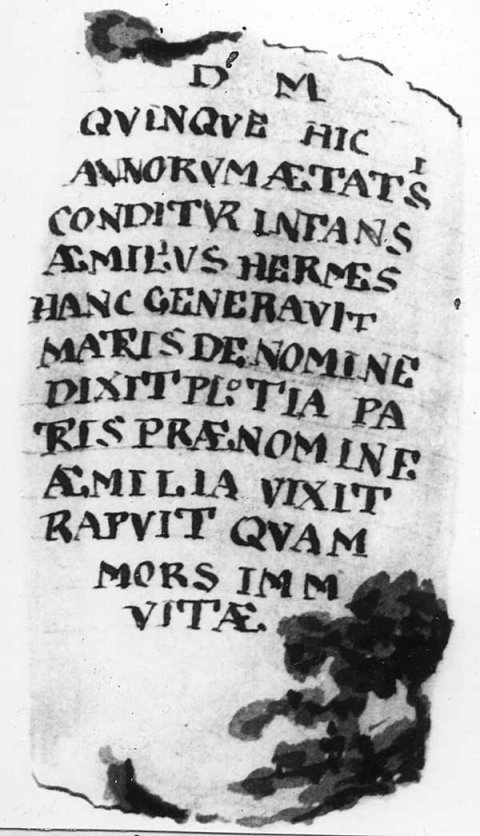 D M
QVINQVE HIC
ANNORVM ÆTATIS
CONDITVR INFANS
ÆMILIVS HERMES
HANC GENERAVIT
MATRIS DE NOMINE
DIXIT PLOTIA PA
TRIS PRÆNOMINE
ÆMILIA VIXIT
RAPVIT QVAM
MORS IMM
VITÆ